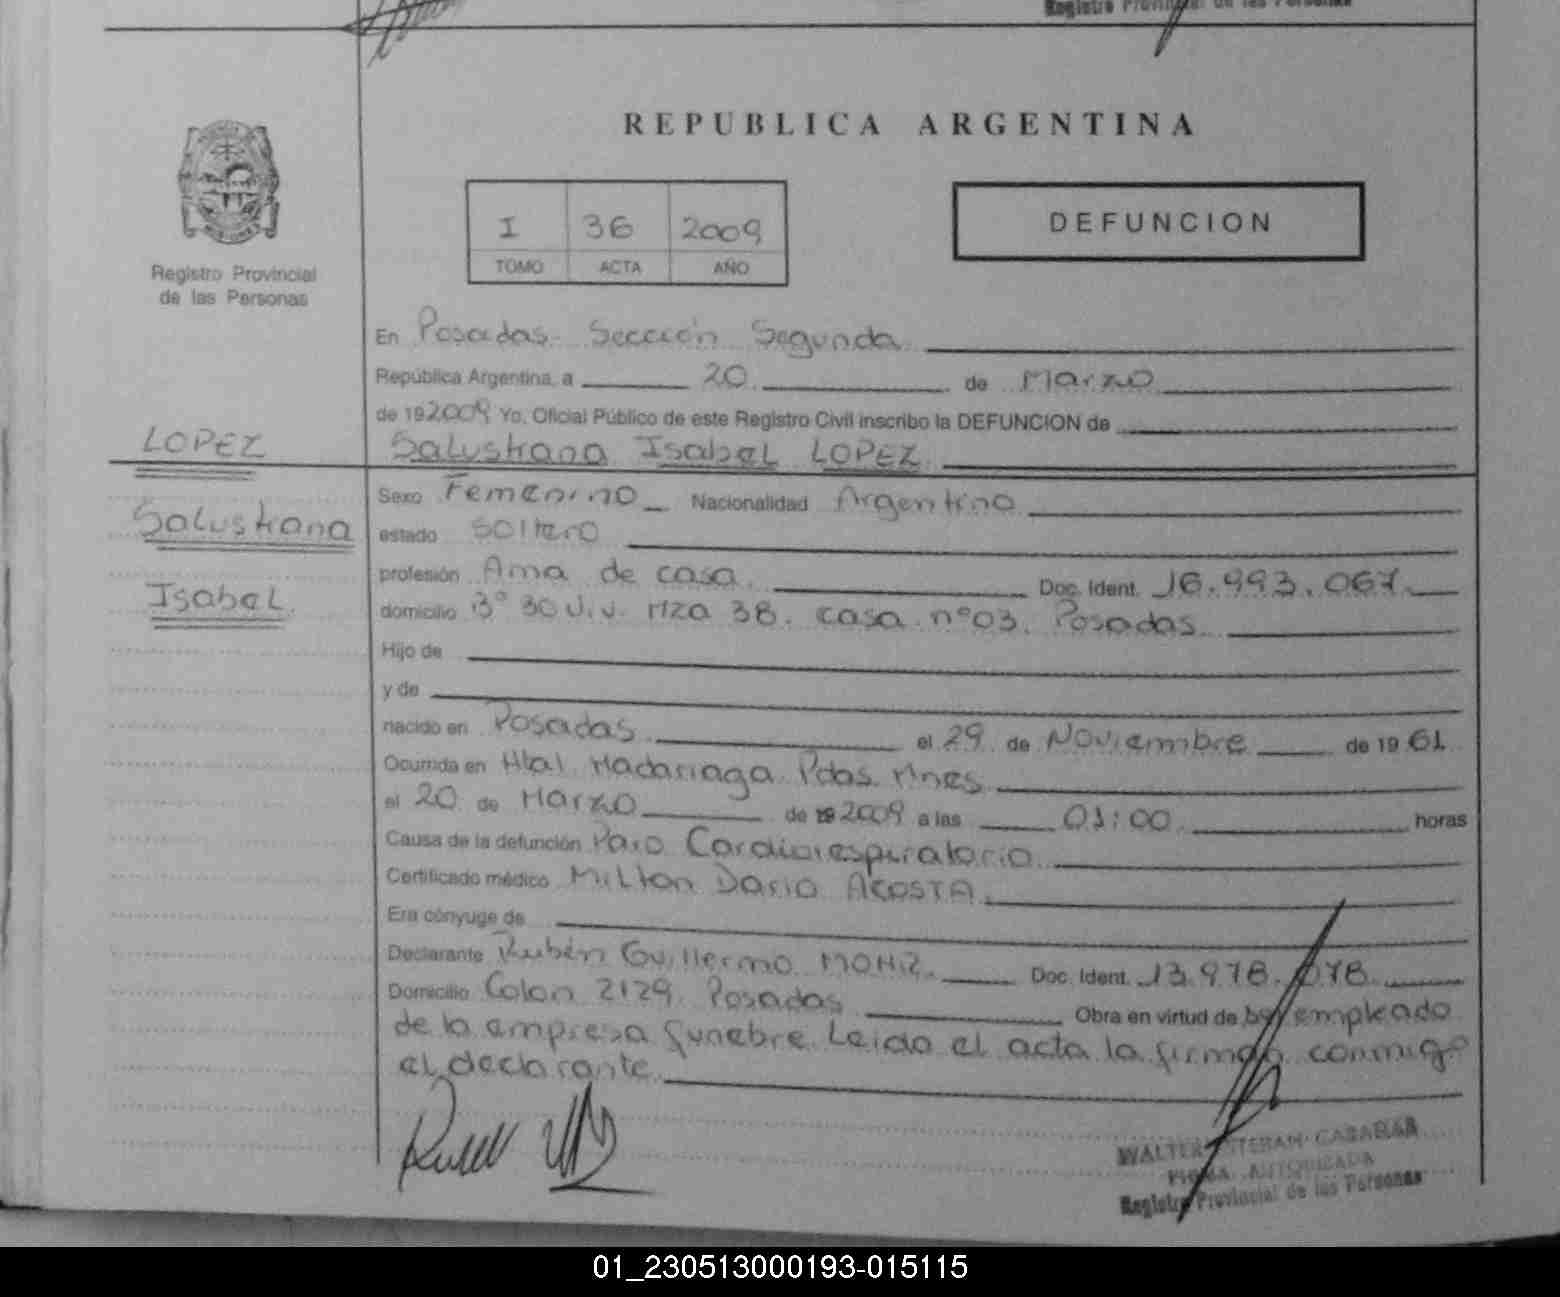 Registro Provincial de las Personas
REPUBLICA ARGENTINA
I 36 2009
TOMO ACTA AÑO
DEFUNCION
Registro Provincial
de las Personas
En Posadas. Sección Segunda
República Argentina, a 20 de Marzo
de 192009 Yo, Oficial Público de este Registro Civil inscribo la DEFUNCION de
LOPEZ
Salustrana Isabel LOPEZ
Salustrana
Isabel
Sexo Femenino Nacionalidad Argentino
estado Soltero
profesión Ama de casa. Doc. Ident. 16.993.067
domicilio B° 30 Viv. Mza 38. casa nº03. Posadas
Hijo de
y de
nacido en Posadas el 29 de Noviembre de 19 61
Ocurrida en Htal Madariaga Pdas. Mnes
el 20 de Marzo de 19 2009 a las 01:00 horas
Causa de la defunción Paro Cardiorespiratorio
Certificado médico Milton Dario ACOSTA
Era cónyuge de
Declarante Rubén Guillermo Doc. Ident. 13.978.078
Domicilio Colon 2129. Posadas Obra en virtud de ser empleado
de la empresa funebre. Leida el acta la firman conmigo
el declarante
WALTER ESTEBAN
FIRMA AUTORIZADA
Registro Provincial de las Personas
01_230513000193-015115